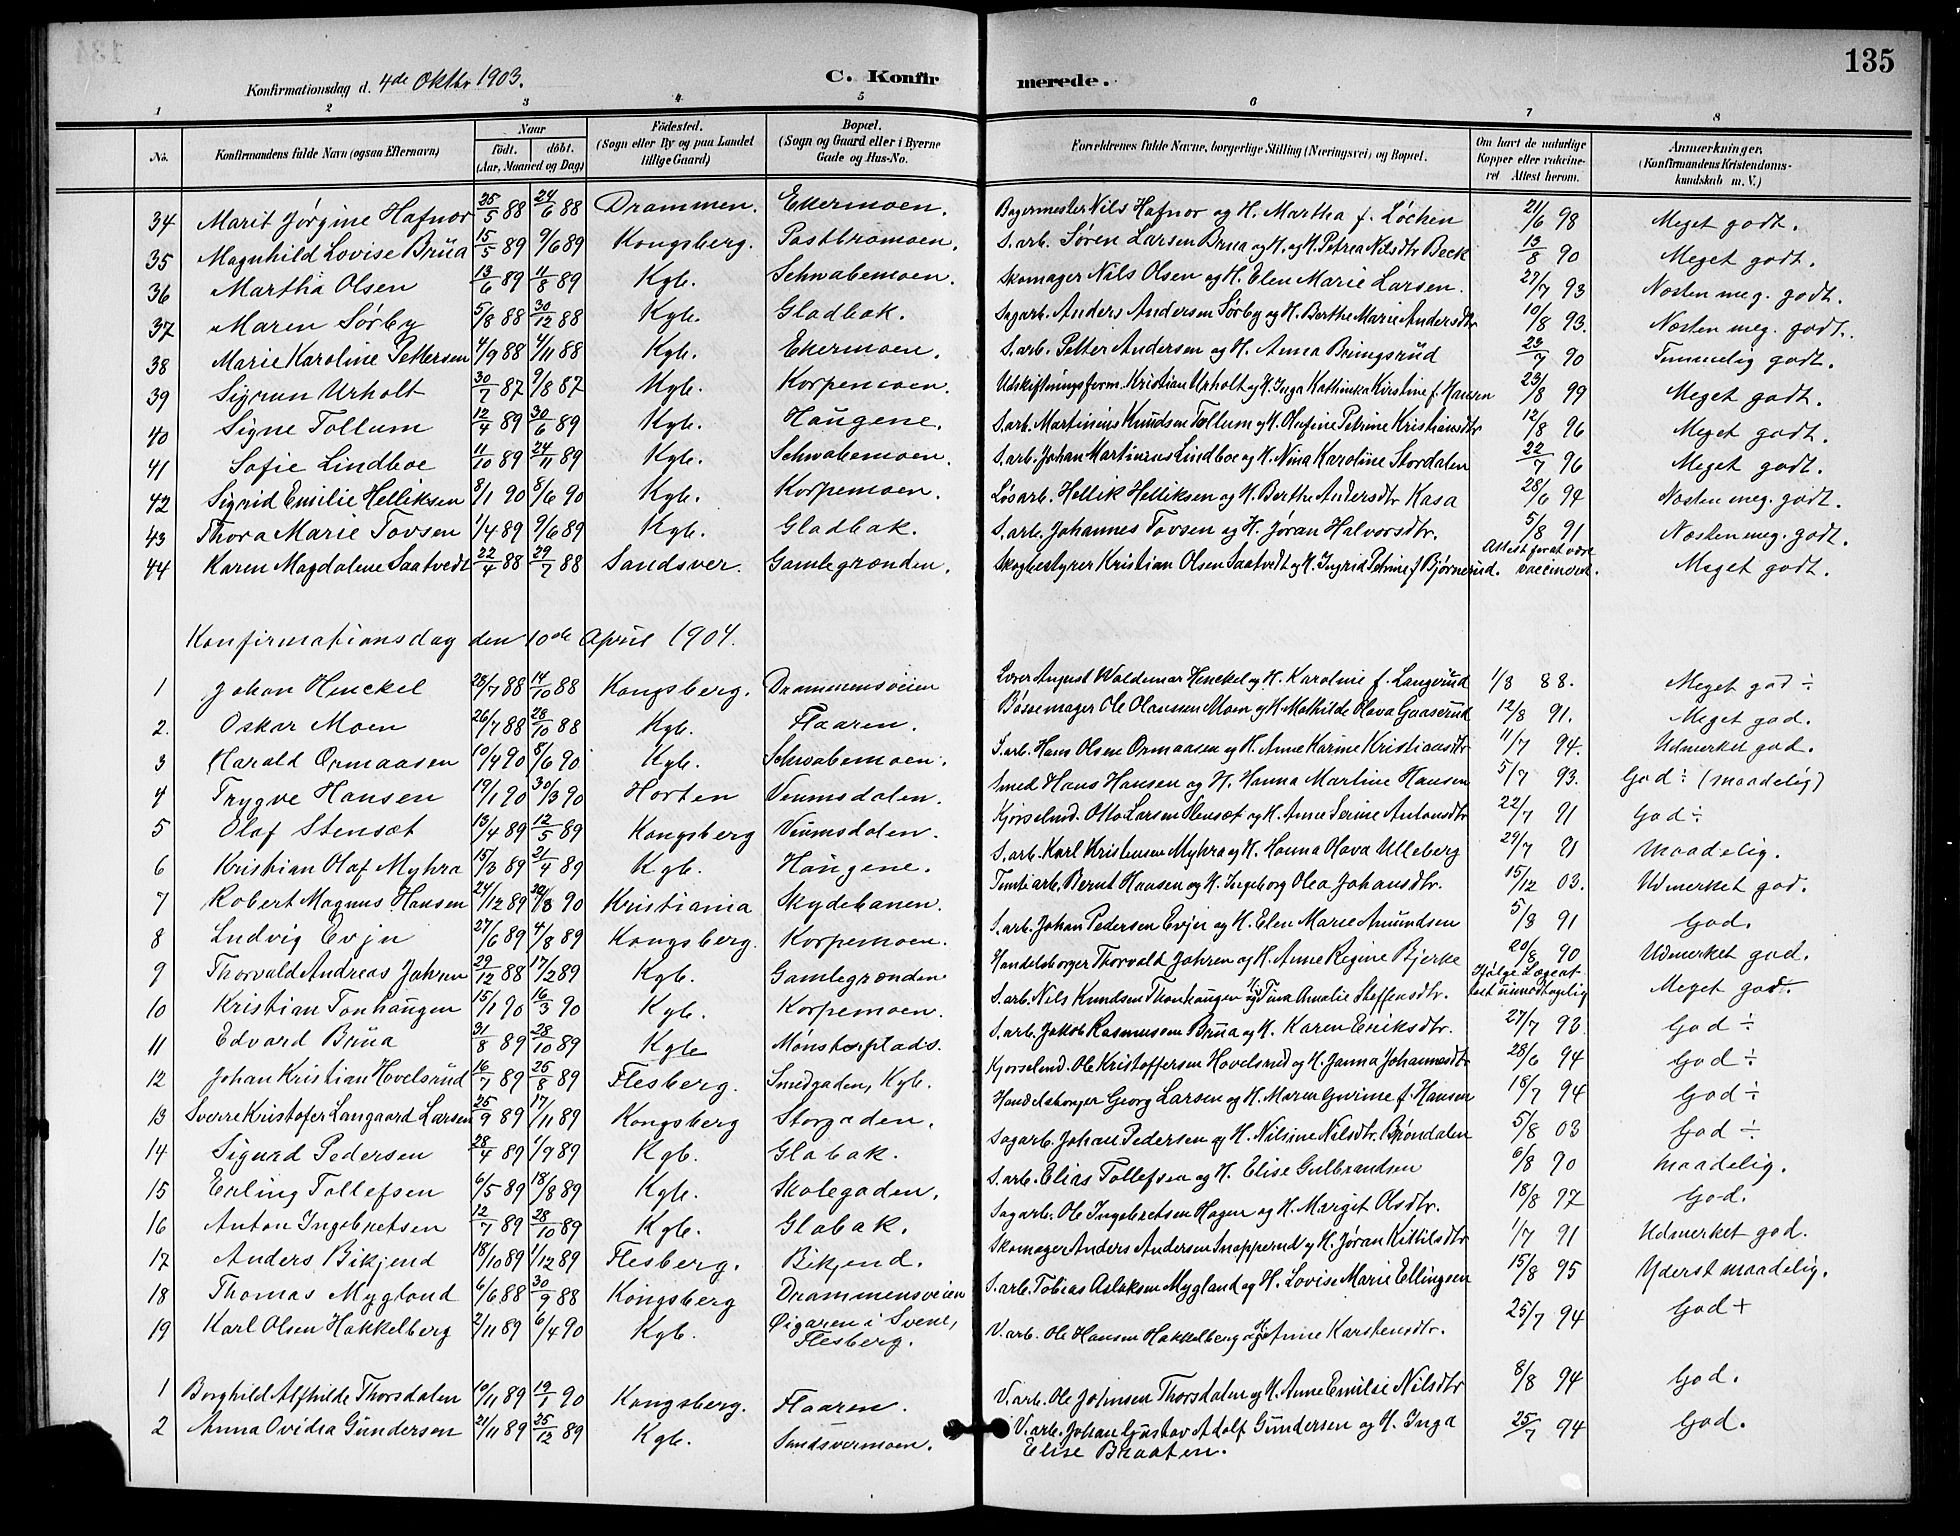 135
Konfirmationsdag d. 4de Oktbr 1903. C. Konfirmerede.
1 2 3 4 5 6 7 8
No. Konfirmandens fulde Navn (ogsaa Efternavn) Naar født. døbt. (Aar, Maaned og Dag) Födested. (Sogn eller By og paa Landet tillige Gaard) Bopæl. (Sogn og Gaard eller i Byerne Gade og Hus-No. Forældrenes fulde Navne, borgerlige Stilling (Næringsvei) og Bopæl. Om havt de naturlige Kopper eller vakcineret Attest herom. Anmærkninger. (Konfirmandens Kristendomskundskab m. V.)
34 Marit Jørgine Hafnor 25/5 88 24/6 88 Drammen. Ekermoen. Bagermester Nils Hafnor og H. Martha f. Løchen 21/6 98 Meget godt.
35 Magnhild Lovise Brua 15/5 89 9/6 89 Kongsberg. Pastbromoen. S. arb. Søren Larsen Brua og H. og H. Petrea Nilsdtr Beck 13/8 90 Meget godt.
36 Martha Olsen 13/6 89 11/8 89 Kgb. Schwabemoen. Skomager Nils Olsen og H. Elen Marie Larsen. 27/7 93 Næsten meg. godt.
37 Maren Sørby 5/8 88 30/12 88 Kgb. Gladbak. Sagarb. Anders Andersen Sørby og H. Berthe Marie Andersdtr 10/8 93. Næsten meg. godt.
38 Marie Karoline Pettersen 4/9 88 4/11 88 Kgb. Ekermoen. S. arb. Petter Andersen og H. Anna Bringsrud 23/7 90 Temmelig godt.
39 Sigrun Urholt 30/7 87 9/8 87 Kgb. Korpemoen. Udskiftningsform. Kristian Urholt og H. Inga Kathinka Kirstine f. Hansen 23/8 99 Meget godt.
40 Signe Tollum 12/4 89 30/6 89 Kgb. Haugene. S. arb. Martinius Knudsen Tollum og H. Olufine Petrine Kristiansdtr 12/8 96 Meget godt.
41 Sofie Lindboe 11/10 89 24/11 89 Kgb. Schwabemoen. S. arb. Johan Martinius Lindboe og H. Nina Karoline Stordalen 22/7 96 Meget godt.
42 Sigrid Emilie Helliksen 8/1 90 8/6 90 Kgb. Korpemoen. Løsarb. Hellik Helliksen og H. Berthe Andersdtr Kasa 28/6 94 Næsten meg. godt.
43 Thora Marie Tovsen 1/4 89 9/6 89 Kgb. Gladbak. S. arb. Johannes Tovsen og H. Jøran Halvorsdtr. 5/8 91 Næsten meg. godt.
44 Karen Magdalene Saatvedt 22/4 88 29/7 88 Sandsver. Gamlegrænden. Skogbestyrer Kristian Olsen Saatvedt og H. Ingrid Petrine f. Bjørnerud. Attest for at være vaccineret. Meget godt.
Konfirmationsdag den 10de April 1904.
1 Johan Henckel 28/7 88 14/10 88 Kongsberg. Drammensveien Lærer August Waldemar Henckel og H. Karoline f. Langerud 1/8 88. Meget god ÷
2. Oskar Moen 26/7 88 28/10 88 Kgb. Flaaren. Bøssemager Ole Olaussen Moen og H. Mathilde Olava Gaaserud 12/8 91. Meget god.
3 Harald Ormaasen 10/4 90 8/6 90 Kgb. Schwabemoen. S. arb. Hans Olsen Ormaasen og H. Anne Karine Kristiansdtr 11/7 94. Udmerket god.
4 Trygve Hansen 19/1 90 30/3 90 Horten Veumsdalen. Smed Hans Hansen og H. Hanna Martine Hansen 5/7 93. God ÷ (maadelig)
5 Olaf Stensæt 13/4 89 12/5 89 Kongsberg Veumsdalen. Kjørselmd. Otto Larsen Stensæt og H. Anne Serine Antonsdtr 22/7 91 God ÷
6 Kristian Olaf Myhra 15/3 89 21/4 89 Kgb. Haugene. S. arb. Karl Kristensen Myhra og H. Hanna Olava Ulleberg 29/7 91 Maadelig.
7 Robert Magnus Hansen 24/12 89 30/3 90 Kristiania Skydebanen. Tomtearb. Bernt Hansen og H. Ingeborg Olea Johansdtr. 15/12 03. Udmerket god.
8 Ludvig Evju 27/6 89 4/8 89 Kongsberg. Korpemoen. S. arb. Johan Pedersen Evju og H. Elen Marie Amundsen 5/8 91 God.
9 Thorvald Andreas Jahren 29/12 88 17/2 89 Kgb. Gamlegrænden Handelsborger Thorvald Jahren og H. Anne Regine Bjerke 20/8 90 Udmerket god.
10 Kristian Tonhaugen 15/1 90 16/3 90 Kgb. Korpemoen. S. arb. Nils Knudsen Thonhaugen og H. Tina Amalie Steffensdtr. Ifølge Lægeattest uimodtagelig Meget god.
11 Edvard Brua 31/8 89 28/10 89 Kgb Mønsterplads. S. arb. Jakob Rasmussen Brua og H. Karen Eriksdtr. 27/7 93. God ÷
12 Johan Kristian Hovelsrud 16/7 89 25/8 89 Flesberg. Smedgaden, Kgb. Kjørselmd. Ole Kristoffersen Hovelsrud og H. Janna Johannesdtr 28/6 94 God ÷
13 Sverre Kristofer Langaard Larsen 25/9 89 17/11 89 Kongsberg Storgaden. Handelsborger Georg Larsen og H. Maren Gurine f. Hansen 18/7 94 God ÷
14 Sigurd Pedersen 28/4 89 1/9 89 Kgb. Glabak. Sagarb. Johan Pedersen og H. Nilsine Nilsdtr. Brøndalen 5/8 03 God ÷
15 Erling Tollefsen 6/5 89 18/8 89 Kgb. Skolegaden. S. arb. Elias Tollefsen og H. Elise Gulbrandsen 6/8 90 Maadelig.
16 Anton Ingebretsen 12/7 89 28/10 89 Kgb. Glabak. Sagarb. Ole Ingebretsen Hagen og H. Margit Olsdtr. 18/8 97 God.
17 Anders Bikjend 18/10 89 1/12 89 Flesberg. Bikjend. Skomager Anders Andersen Snapperud og H. Jøran Kittilsdtr 1/7 91 Udmerket god.
18 Thomas Mygland 6/6 88 30/9 88 Kongsberg Drammensveien S. arb. Tobias Aslaksen Mygland og H. Lovise Marie Ellingsen 15/8 95 Yderst maadelig.
19 Karl Olsen Hakkelberg 2/11 89 6/4 90 Kgb. Øigaren i Svene, Flesberg. V. arb. Ole Hansen Hakkelberg og H. Anne Karstensdtr. 25/7 94 God +
1 Borghild Alfhilde Thorsdalen 10/11 89 19/1 90 Kongsberg. Flaaren. V. arb. Ole Johnsen Thorsdalen og H. Anne Emilie Nilsdtr 8/8 94 God.
2 Anna Ovidia Gundersen 21/11 89 25/12 89 Kgb. Sandsvermoen. V. arb. Johan Gustav Adolf Gundersen og H. Inga Elise Braaten. 25/7 94 God.